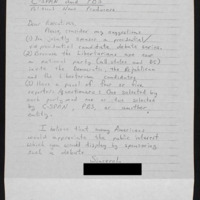 C-SPAN and PBS
Dear Executives,
Please consider my suggestions.
(1) Do jointly sponsor a presidential/
vice presidential candidate debate series.
(2) Because the Libertarians are now
a national party (all states and DC)
invite the Democratic, the Republican
and the Libertarian candidates.
(3) Have a panel of four or five
reporters/questioners: One selected by
each party and one or two selected
by C-SPAN, PBS, or another
entity.
I believe that many Americans
would appreciate the public interest
which you would display by sponsoring
such a debate.
Sincerely